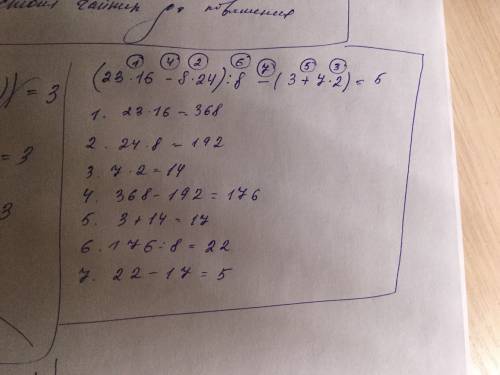 стоит чайник
= 3
= 3
3
1 4 2 6 7 5 3
(23·16 - 8·24):8 - (3 + 7·2) = 5
1. 23·16 = 368
2. 24·8 = 192
3. 7·2 = 14
4. 368 - 192 = 176
5. 3 + 14 = 17
6. 176:8 = 22
7. 22 - 17 = 5